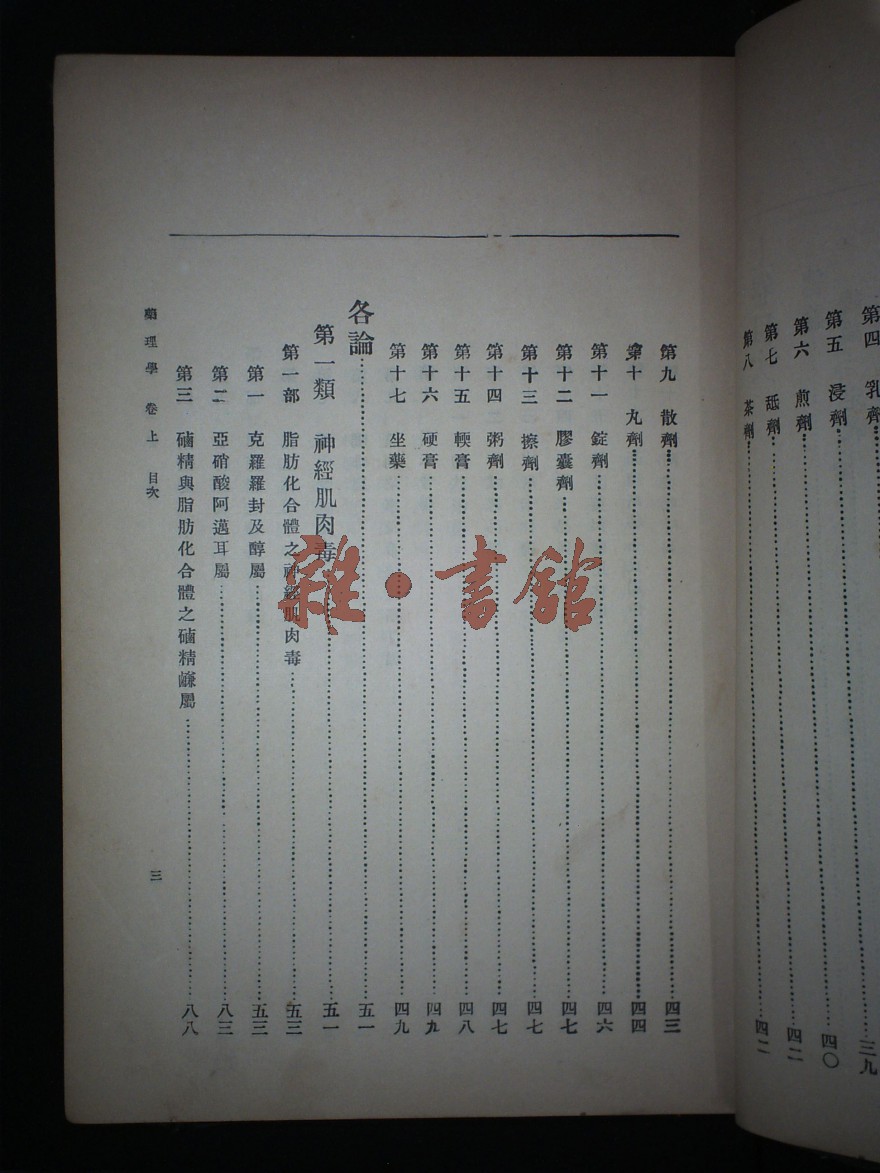 第四 乳劑…………三九
第五 浸劑…………四〇
第六 煎劑…………四二
第七 舐劑…………四二
第八 茶劑…………四二
第九 散劑…………四三
第十 丸劑…………四四
第十一 錠劑…………四六
第十二 膠囊劑…………四七
第十三 擦劑…………四七
第十四 粥劑…………四七
第十五 輭膏…………四八
第十六 硬膏…………四九
第十七 坐藥…………四九
各論…………五一
第一類 神經肌肉毒…………五一
第一部 脂肪化合體之神經肌肉毒…………五三
第一 克羅羅封及醇屬…………五三
第二 亞硝酸阿邁耳屬…………八三
第三 磠精與脂肪化合體之磠精鹻屬…………八八
藥理學 卷上 目次 三
雜·書館